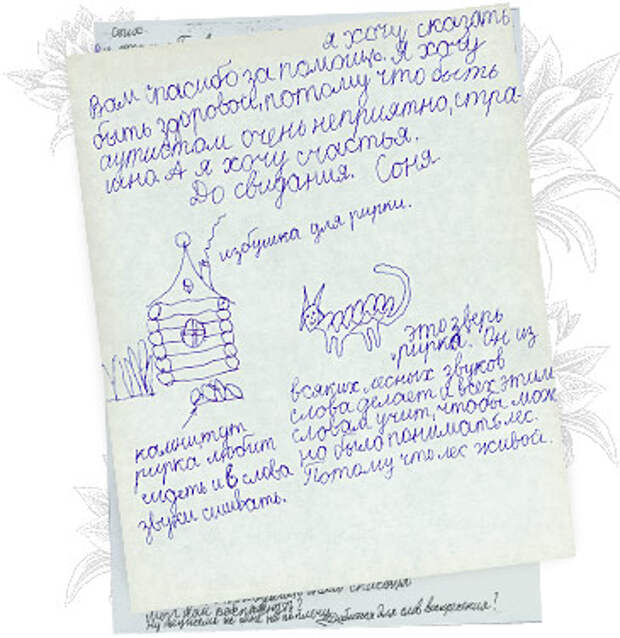 Стих.
я хочу сказать
Вам спасибо за помощь. Я хочу
быть здоровой, потому что быть
аутистом очень неприятно, стра-
шна А я хочу счастья.
До свидания. Соня
избушка для рирки.
это зверь
рирка. Он из
всяких лесных звуков
слова делает и всех этим
словам учит, чтобы мож
но было понимать лес.
Потому что лес живой.
камни тут
рирка любит
сидеть и в слова
звуки сшивать.